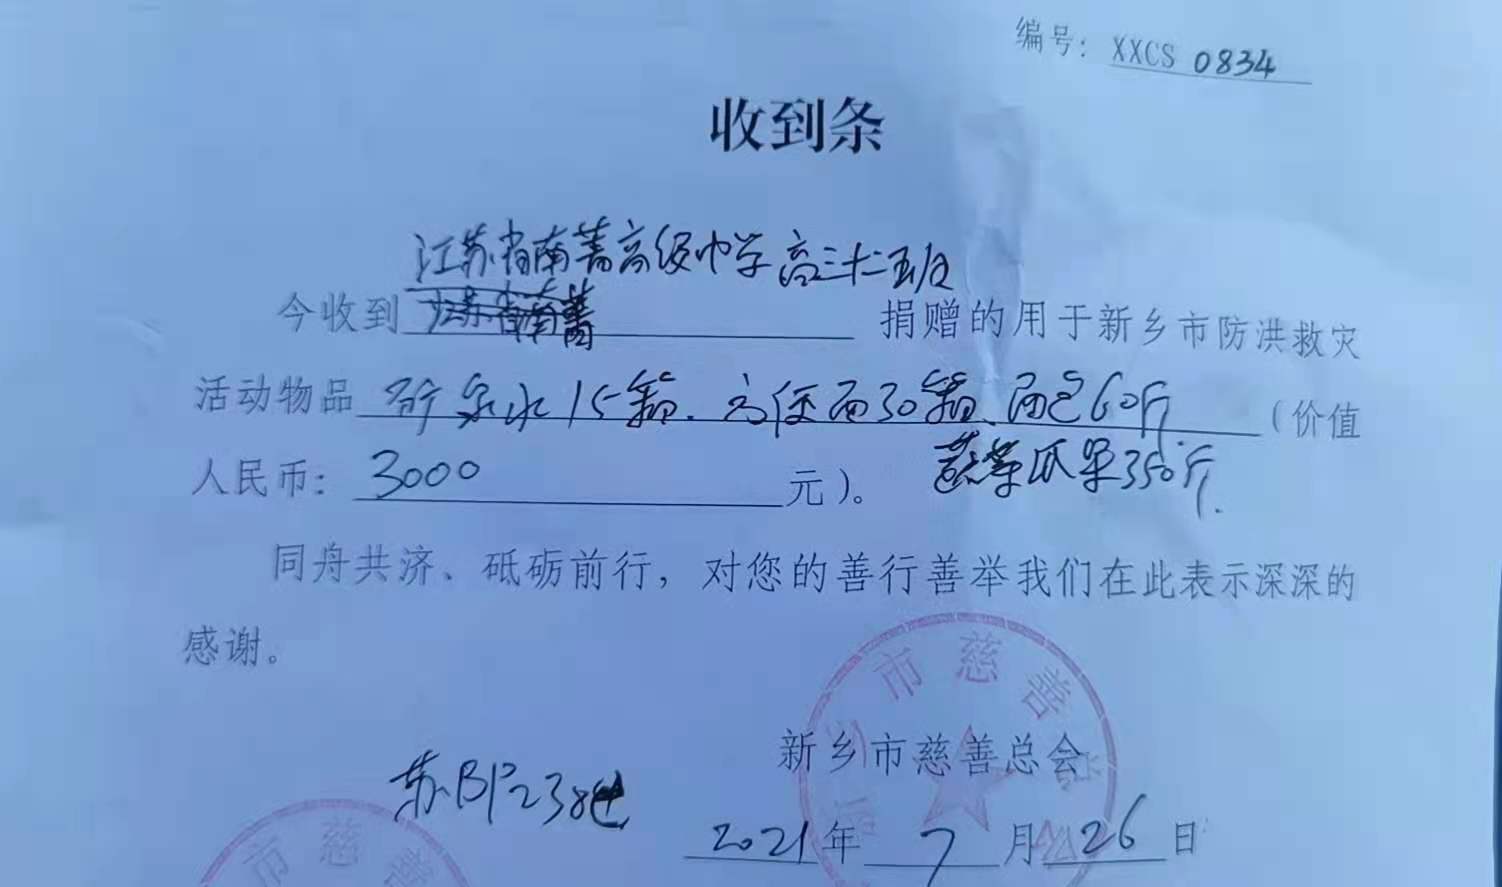 编号：XXCS 0834
收到条
江苏省南菁高级中学高三十二班
今收到 江苏省南菁 捐赠的用于新乡市防洪救灾
活动物品 矿泉水15箱、方便面30箱、面包60斤（价值
蔬菜瓜果350斤.
人民币：3000元）。
同舟共济、砥砺前行，对您的善行善举我们在此表示深深的
感谢。
市慈善总会
新乡市慈善总会
苏BP238
2021年7月26日
市慈善